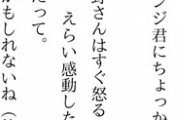 ンジ君にちょっか
野さんはすぐ怒る
えらい感動した
たって。
かもしれないね（